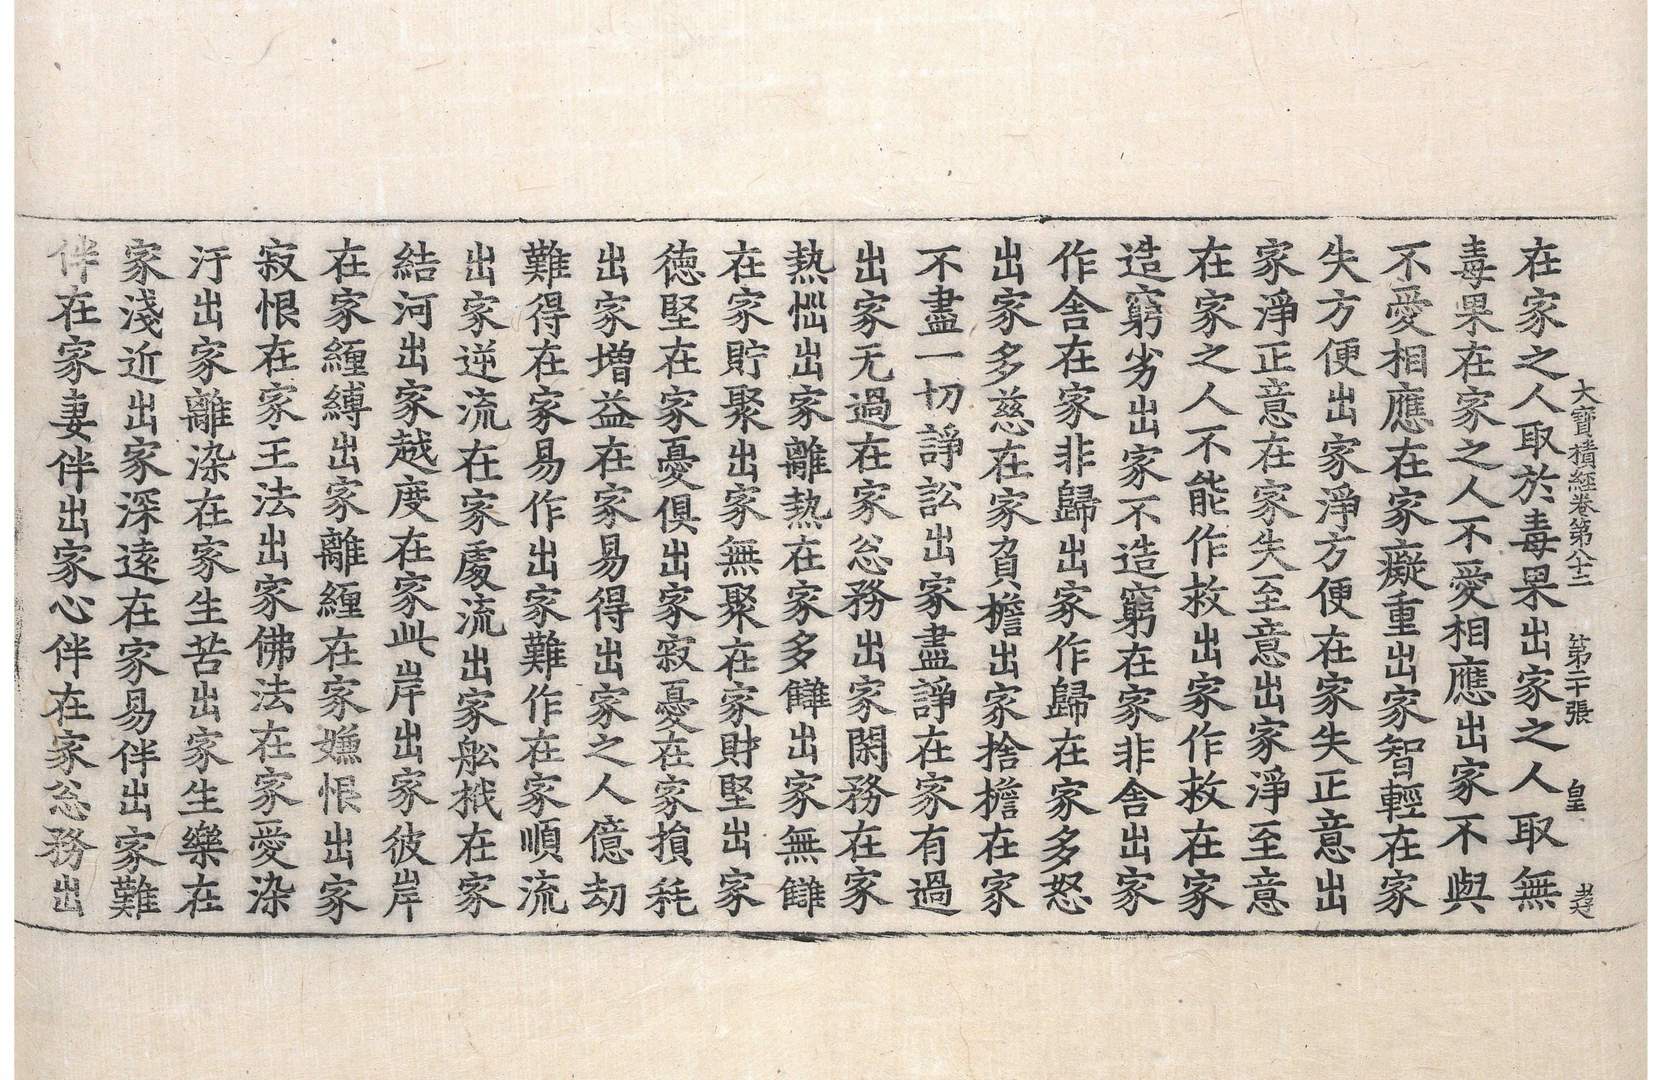 大寶積經卷第八十二 第二十張 皇
在家之人取於毒果出家之人取無
毒果在家之人不愛相應出家不與
不愛相應在家癡重出家智輕在家
失方便出家淨方便在家失正意出
家淨正意在家失至意出家淨至意
在家之人不能作救出家作救在家
造窮劣出家不造窮在家非舍出家
作舍在家非歸出家作歸在家多怒
出家多慈在家負檐出家捨檐在家
不盡一切諍訟出家盡諍在家有過
出家无過在家忩務出家閑務在家
熱惱出家離熱在家多讎出家無讎
在家貯聚出家無聚在家財堅出家
德堅在家憂俱出家寂憂在家損秏
出家增益在家易得出家之人億劫
難得在家易作出家難作在家順流
出家逆流在家處流出家舩撠在家
結河出家越度在家此岸出家彼岸
在家纏縛出家離纏在家嫌恨出家
寂恨在家王法出家佛法在家愛染
汙出家離染在家生苦出家生樂在
家淺近出家深遠在家易伴出家難
伴在家妻伴出家心伴在家忩務出